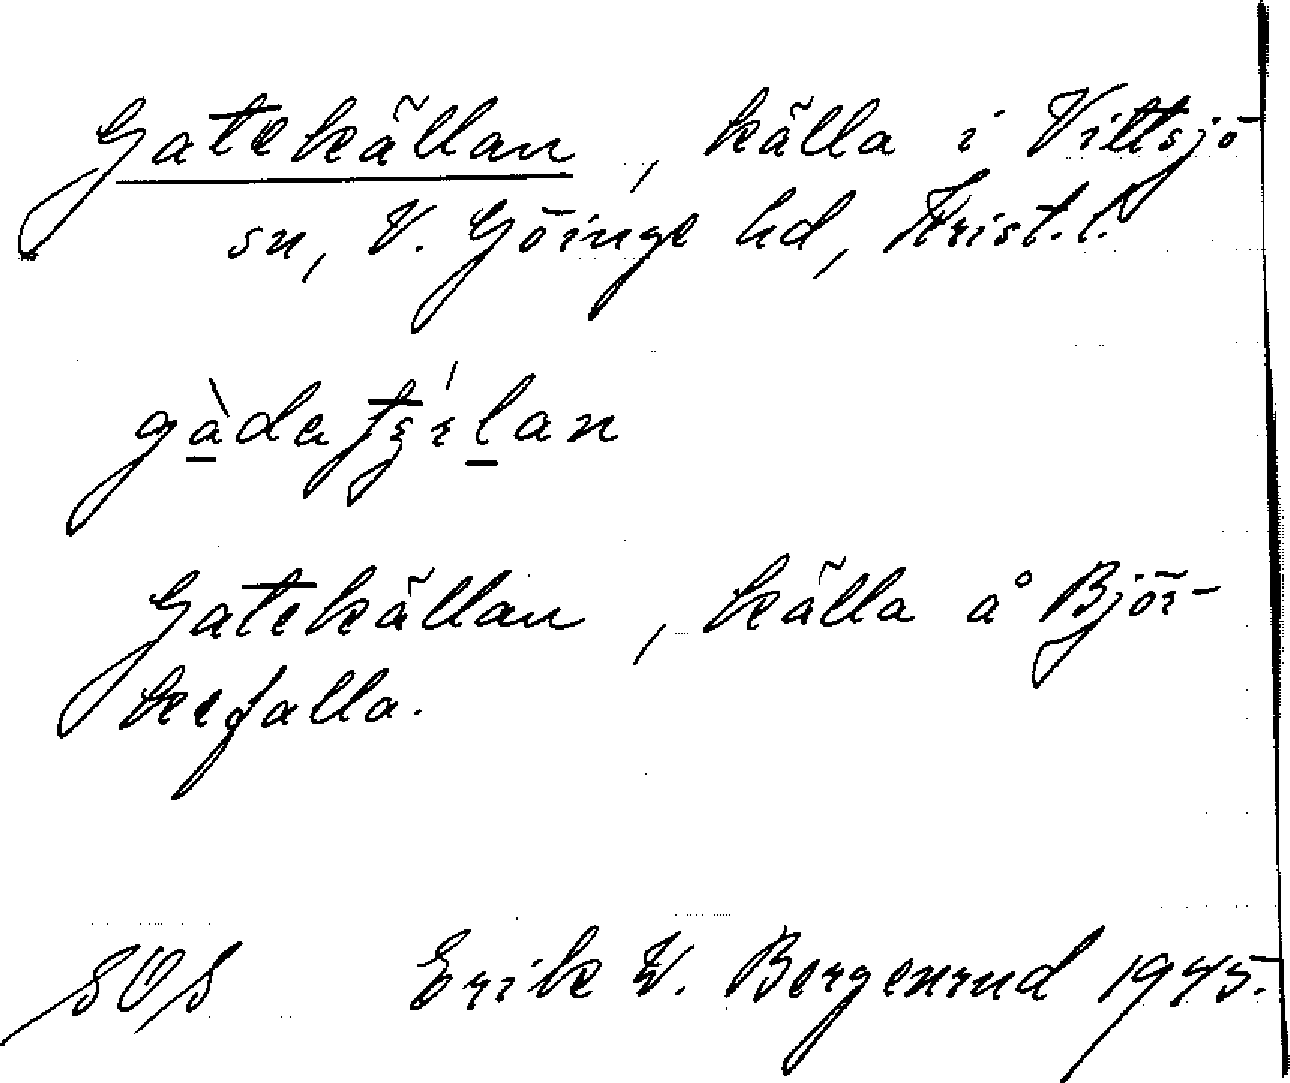 Gatekällan, källa i Vittsjö
sn, V. Göinge hd, Krist. l.
gàdatʃɛ́lan
Gatekällan, källa å Björ-
kefalla.
SOS Erik W. Bergenrud 1945.